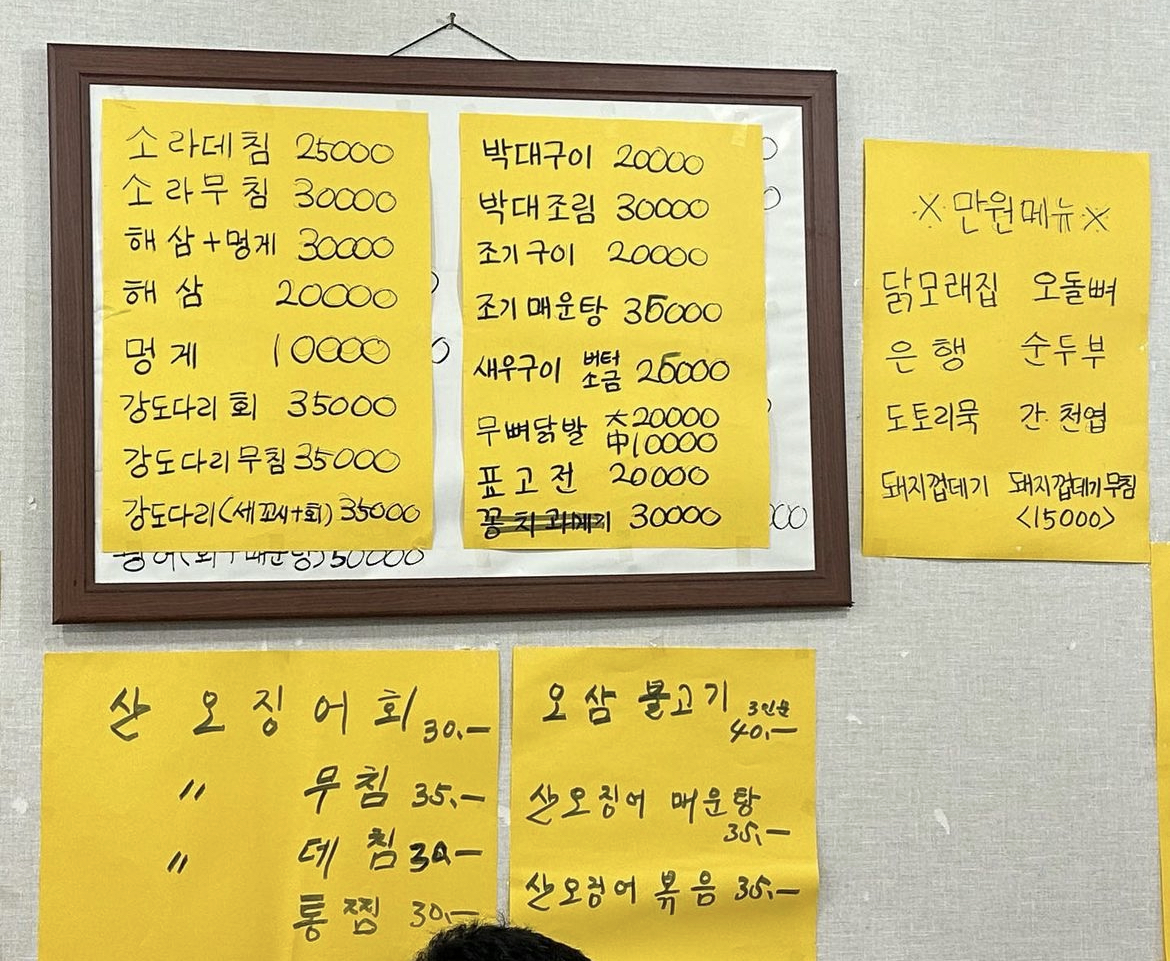 소라데침 25000
소라무침 30000
해삼+멍게 30000
해삼 20000
멍게 10000
강도다리회 35000
강도다리무침 35000
강도다리(세꼬시+회) 35000
50000
박대구이 20000
박대조림 30000
조기구이 20000
조기매운탕 35000
새우구이 버터 소금 25000
무뼈닭발 大20000
中10000
표고전 20000
꽁치과메기 30000
※만원메뉴※
닭모래집 오돌뼈
은행 순두부
도토리묵 간.천엽
돼지껍데기 돼지껍데기무침
<15000>
산 오징어회 30.—
〃 무침 35.—
〃 데침 30.—
통찜 30.—
오삼불고기 3인분
40.—
산오징어 매운탕
35.—
산오징어 볶음 35.—